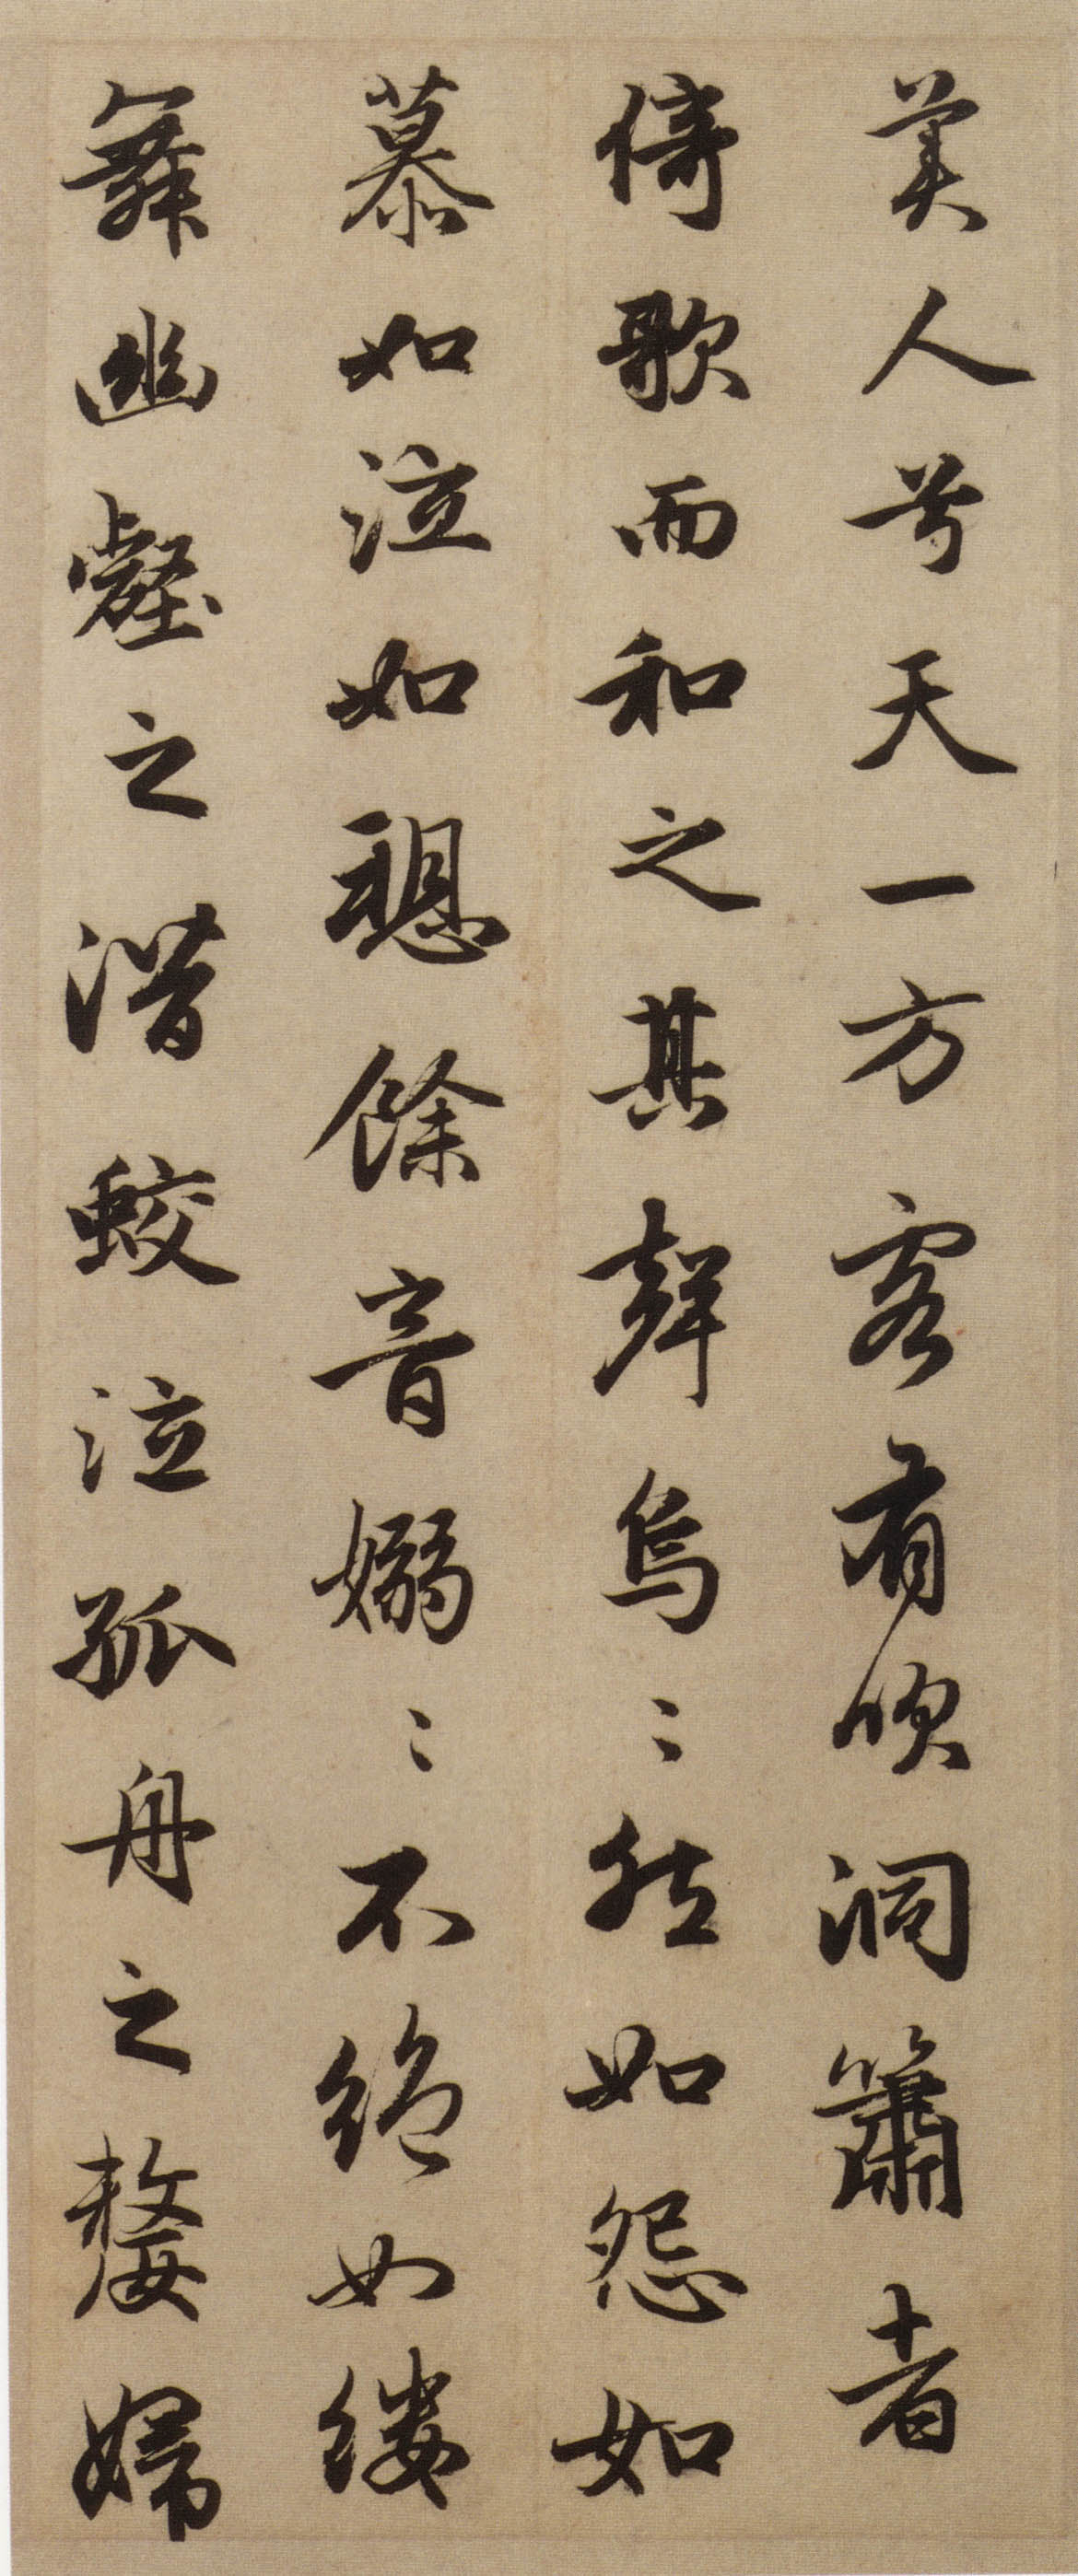 美人兮天一方客有吹洞簫者
倚歌而和之其聲烏〻然如怨如
慕如泣如愬餘音嫋〻不絕如縷
舞幽壑之潛蛟泣孤舟之嫠婦